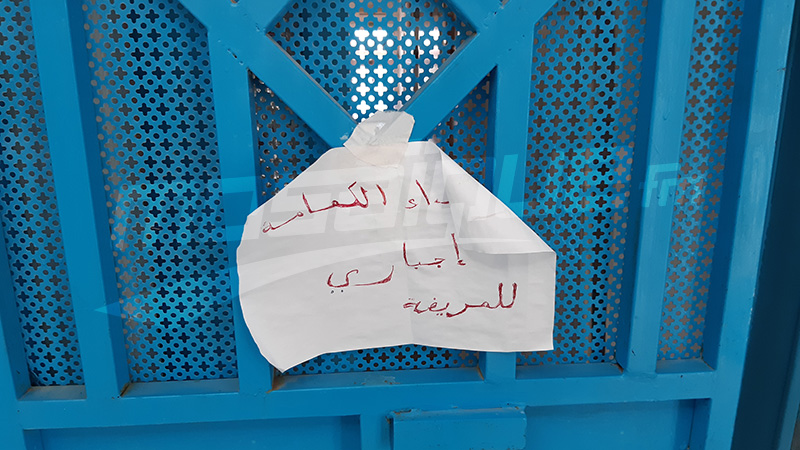 الكمامه
إجباري
للمريضة